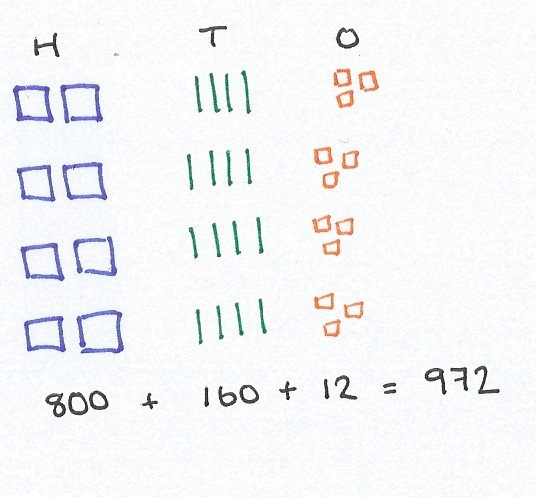 H T O
800 + 160 + 12 = 972